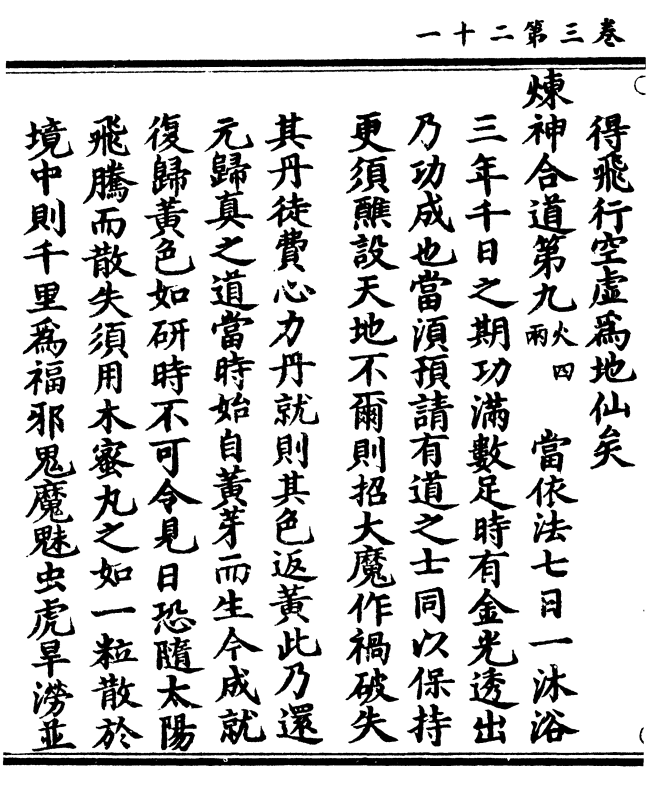 卷三第二十一
得飛行空虛為地仙矣
煉神合道第九 火四兩 當依法七日一沐浴
三年千日之期功滿數足時有金光透出
乃功成也當須預請有道之士同以保持
更須醮設天地不爾則招大魔作禍破失
其丹徒費心力丹就則其色返黃此乃還
元歸真之道當時始自黃芽而生今成就
復歸黃色如研時不可令見日恐隨太陽
飛騰而散失須用木蜜丸之如一粒散於
境中則千里為福邪鬼魔魅虫虎旱澇並